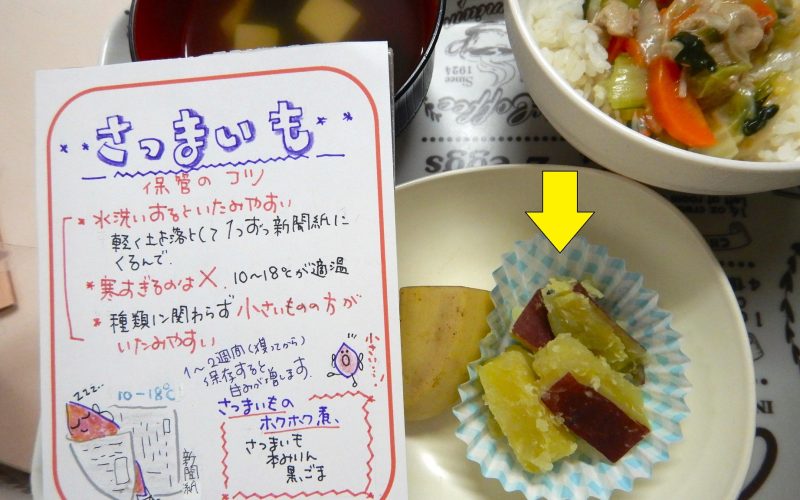 さつまいも
保管のコツ
* 水洗いするといたみやすい
軽く土を落として1つずつ新聞紙に
くるんで.
* 寒すぎるのは×. 10〜18℃が適温
* 種類に関わらず 小さいものの方が
いたみやすい
小さい…
1〜2週間(獲ってから)
保存すると
甘みが増します.
zzz...
10-18℃
新聞紙
さつまいもの
ホクホク煮、
さつまいも
本みりん
黒ごま
Since
1924
Coffee
2 eggs
14 oz